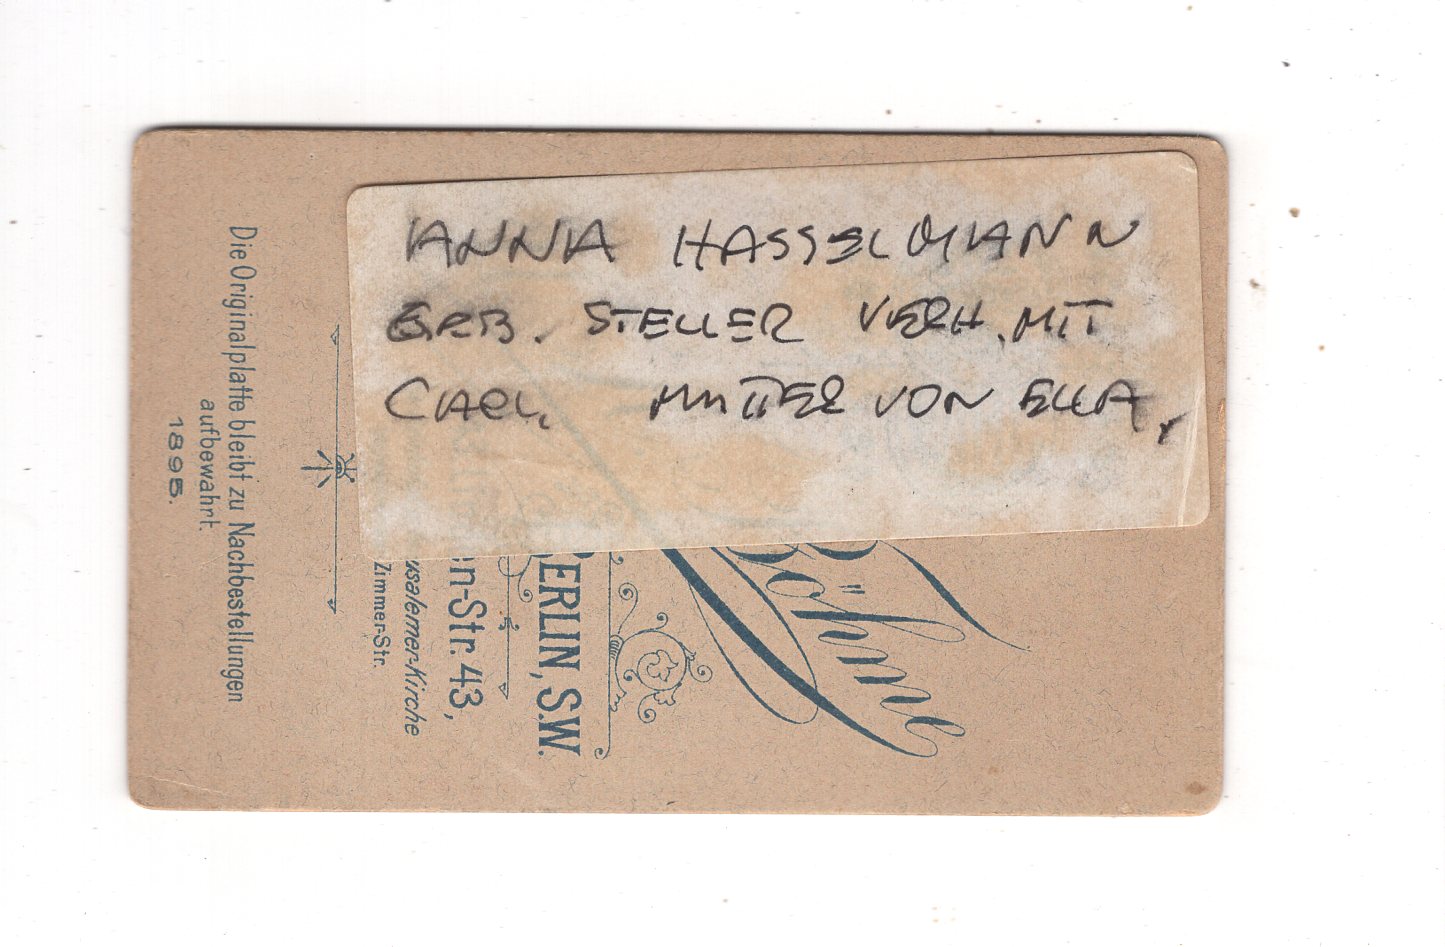 ANNA HASSELMANN
GEB. STELLER VERH. MIT
CARL. MUTTER VON ELLA.
Böhme
BERLIN, S.W.
n-Str. 43,
usalemer-Kirche
Zimmer-Str.
Die Originalplatte bleibt zu Nachbestellungen
aufbewahrt.
1895.